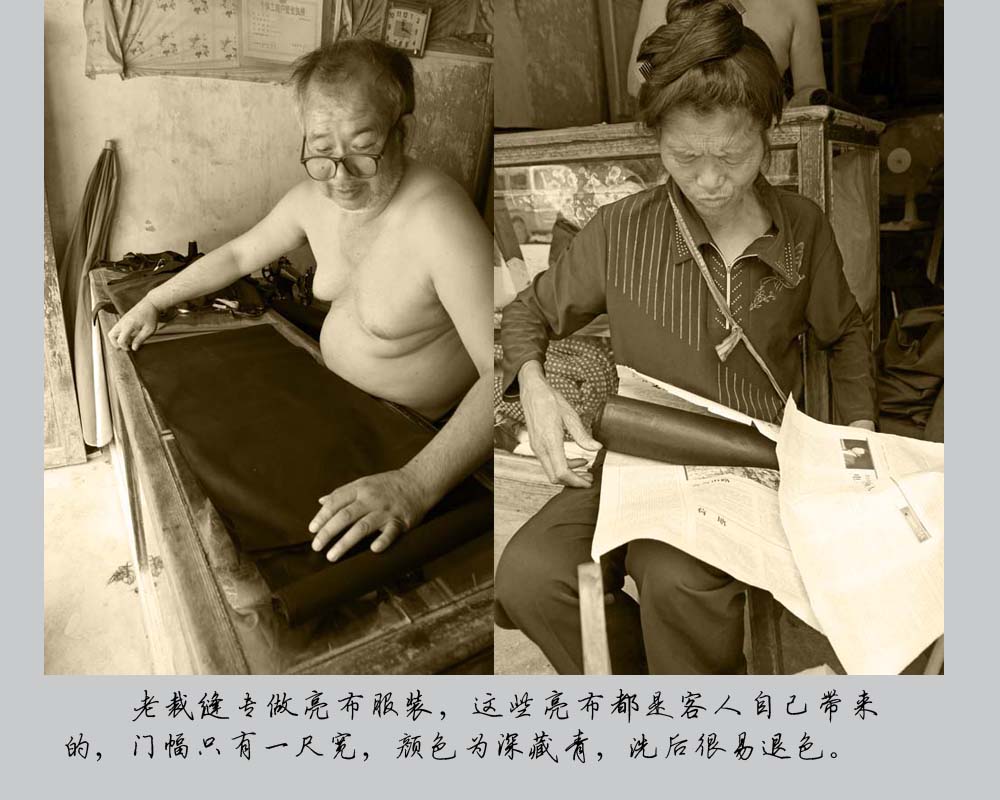 老裁缝专做亮布服装，这些亮布都是客人自己带来
的，门幅只有一尺宽，颜色为深藏青，洗后很易退色。